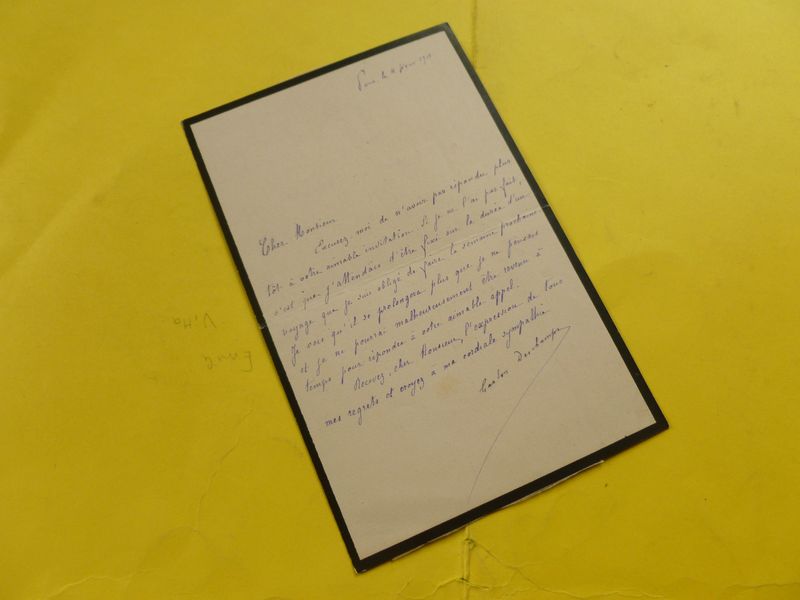 Paris le 11 1911
Cher Monsieur
Excusez moi de n'avoir pas répondu plus
tôt à votre aimable invitation. Si je ne l'ai pas fait,
c'est que j'attendais d'être fixé sur la durée d'un
voyage que je suis obligé de faire la semaine prochaine
Je vois qu'il se prolongera plus que je ne pensais
et je ne pourrai malheureusement être revenu à
temps pour répondre à votre aimable appel.
Recevez, cher Monsieur, l'expression de tous
mes regrets et croyez à ma cordiale sympathie
Gaston Deschamps